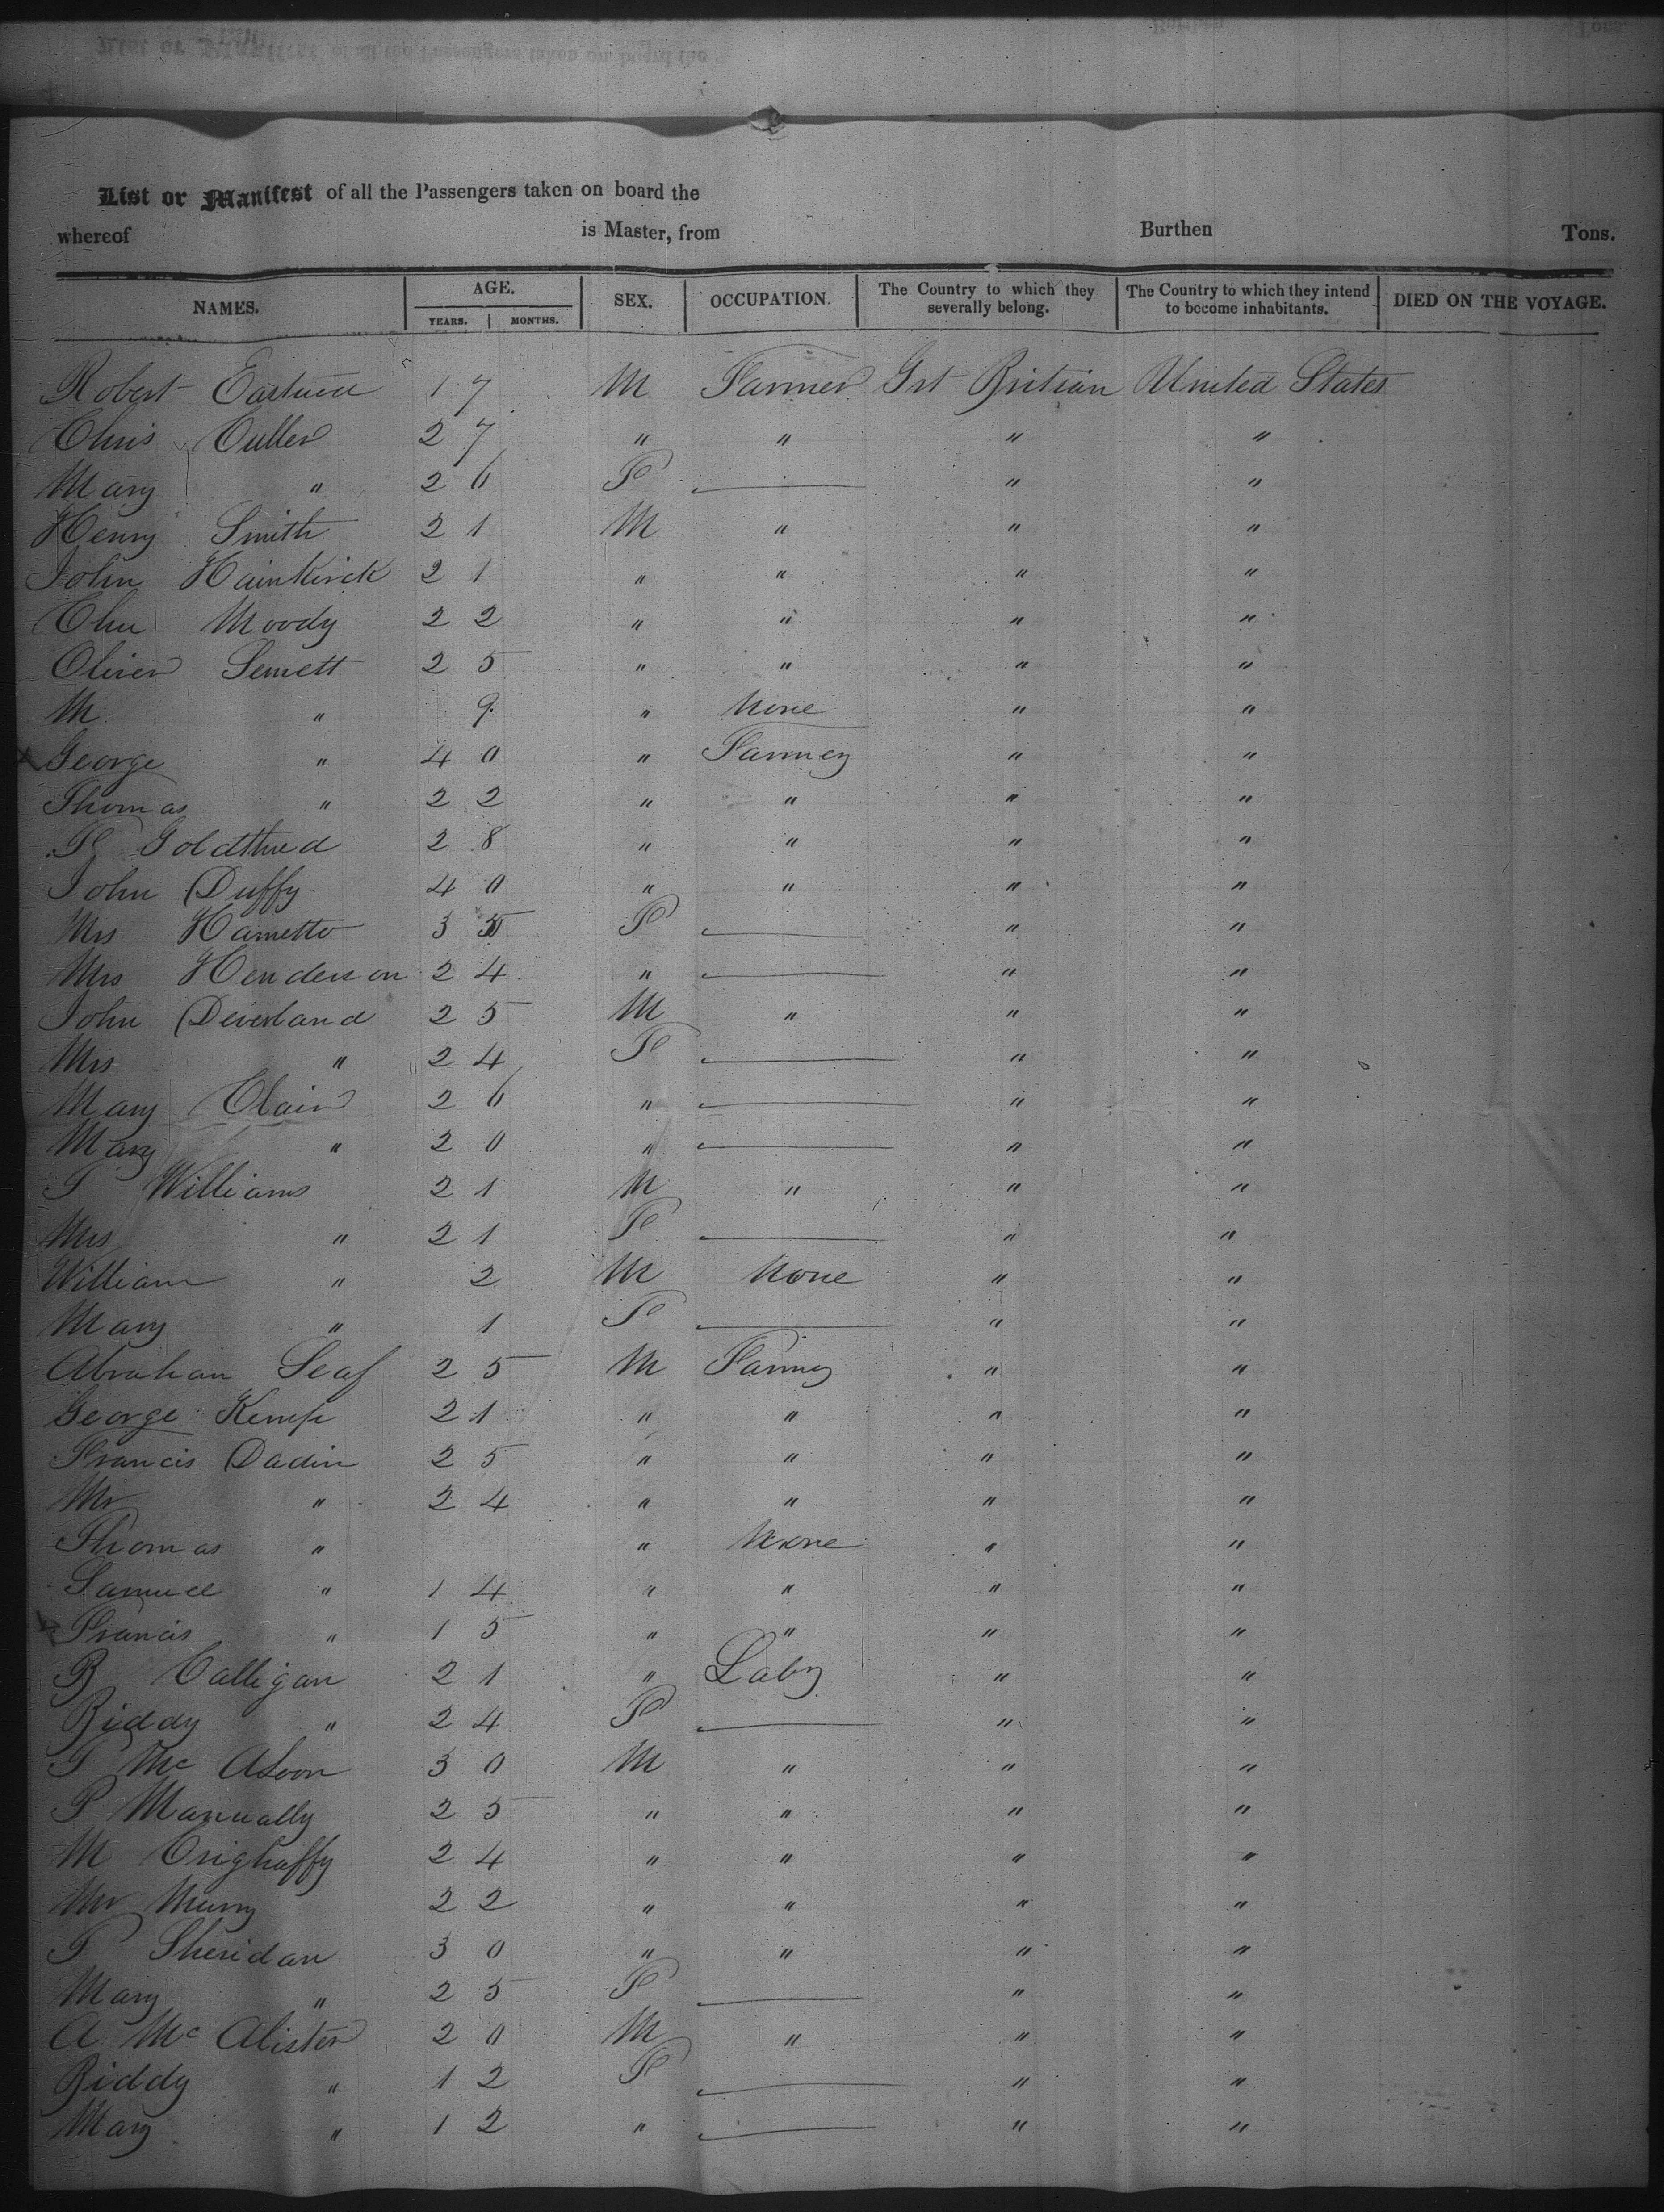 List or Manifest of all the Passengers taken on board the
whereof is Master, from Burthen Tons.
NAMES. AGE. SEX. OCCUPATION. The Country to which they severally belong. The Country to which they intend to become inhabitants. DIED ON THE VOYAGE.
YEARS. MONTHS.
Robert 17 M Farmer Grt Britian United States
Chris Culler 27 " " " "
Mary " 26 F " "
Henry Smith 21 M " " "
John Hainkirck 21 " " " "
Moody 22 " " " "
Oliver Semett 25 " " " "
M " 9 " None " "
George " 40 " Farmer " "
Thomas " 22 " " " "
Goldthred 28 " " " "
John Duffy 40 " " " "
Mrs Hametto 35 F " "
Mrs Henderson 24 " " "
John Deverland 25 M " " "
Mrs " 24 F " "
Mary Clair 26 " " "
Mary " 20 " " "
T Williams 21 M " " "
Mrs " 21 F " "
William " 2 M None " "
Mary " 1 F " "
Abraham Seaf 25 M Farmer " "
George Kemp 21 " " " "
Francis Dadin 25 " " " "
Mr " 24 " " " "
Thomas " " None " "
Samuel " 14 " " " "
Francis " 15 " " " "
B Calligan 21 " Labr " "
Biddy " 24 F " "
T Mc Aloon 30 M " " "
P Manually 25 " " " "
M Crighaffy 24 " " " "
Mr Murry 22 " " " "
T Sheridan 30 " " " "
Mary " 25 F " "
A Mc Alister 20 M " " "
Biddy " 12 F " "
Mary " 12 " " "